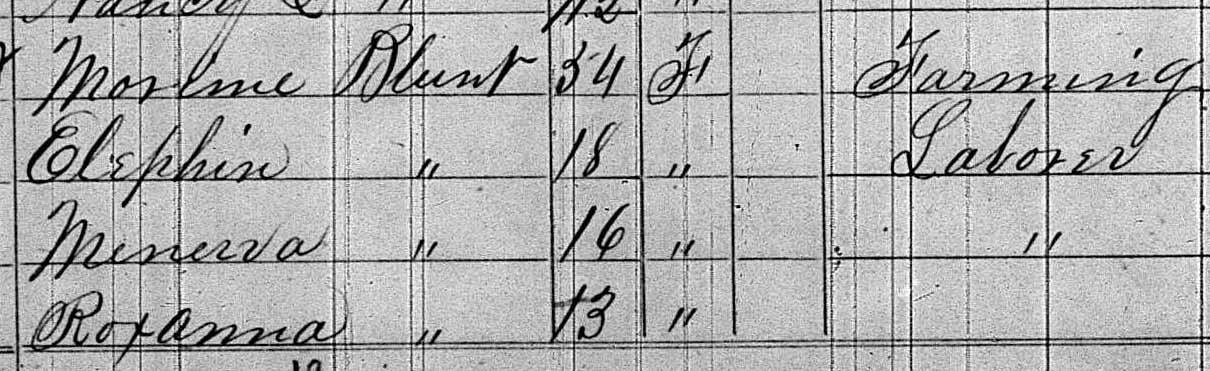 Nancy L " 42 "
Morlme Blunt 54 F Farming
Elephin " 18 " Laborer
Minerva " 16 " "
Roxanna " 13 "